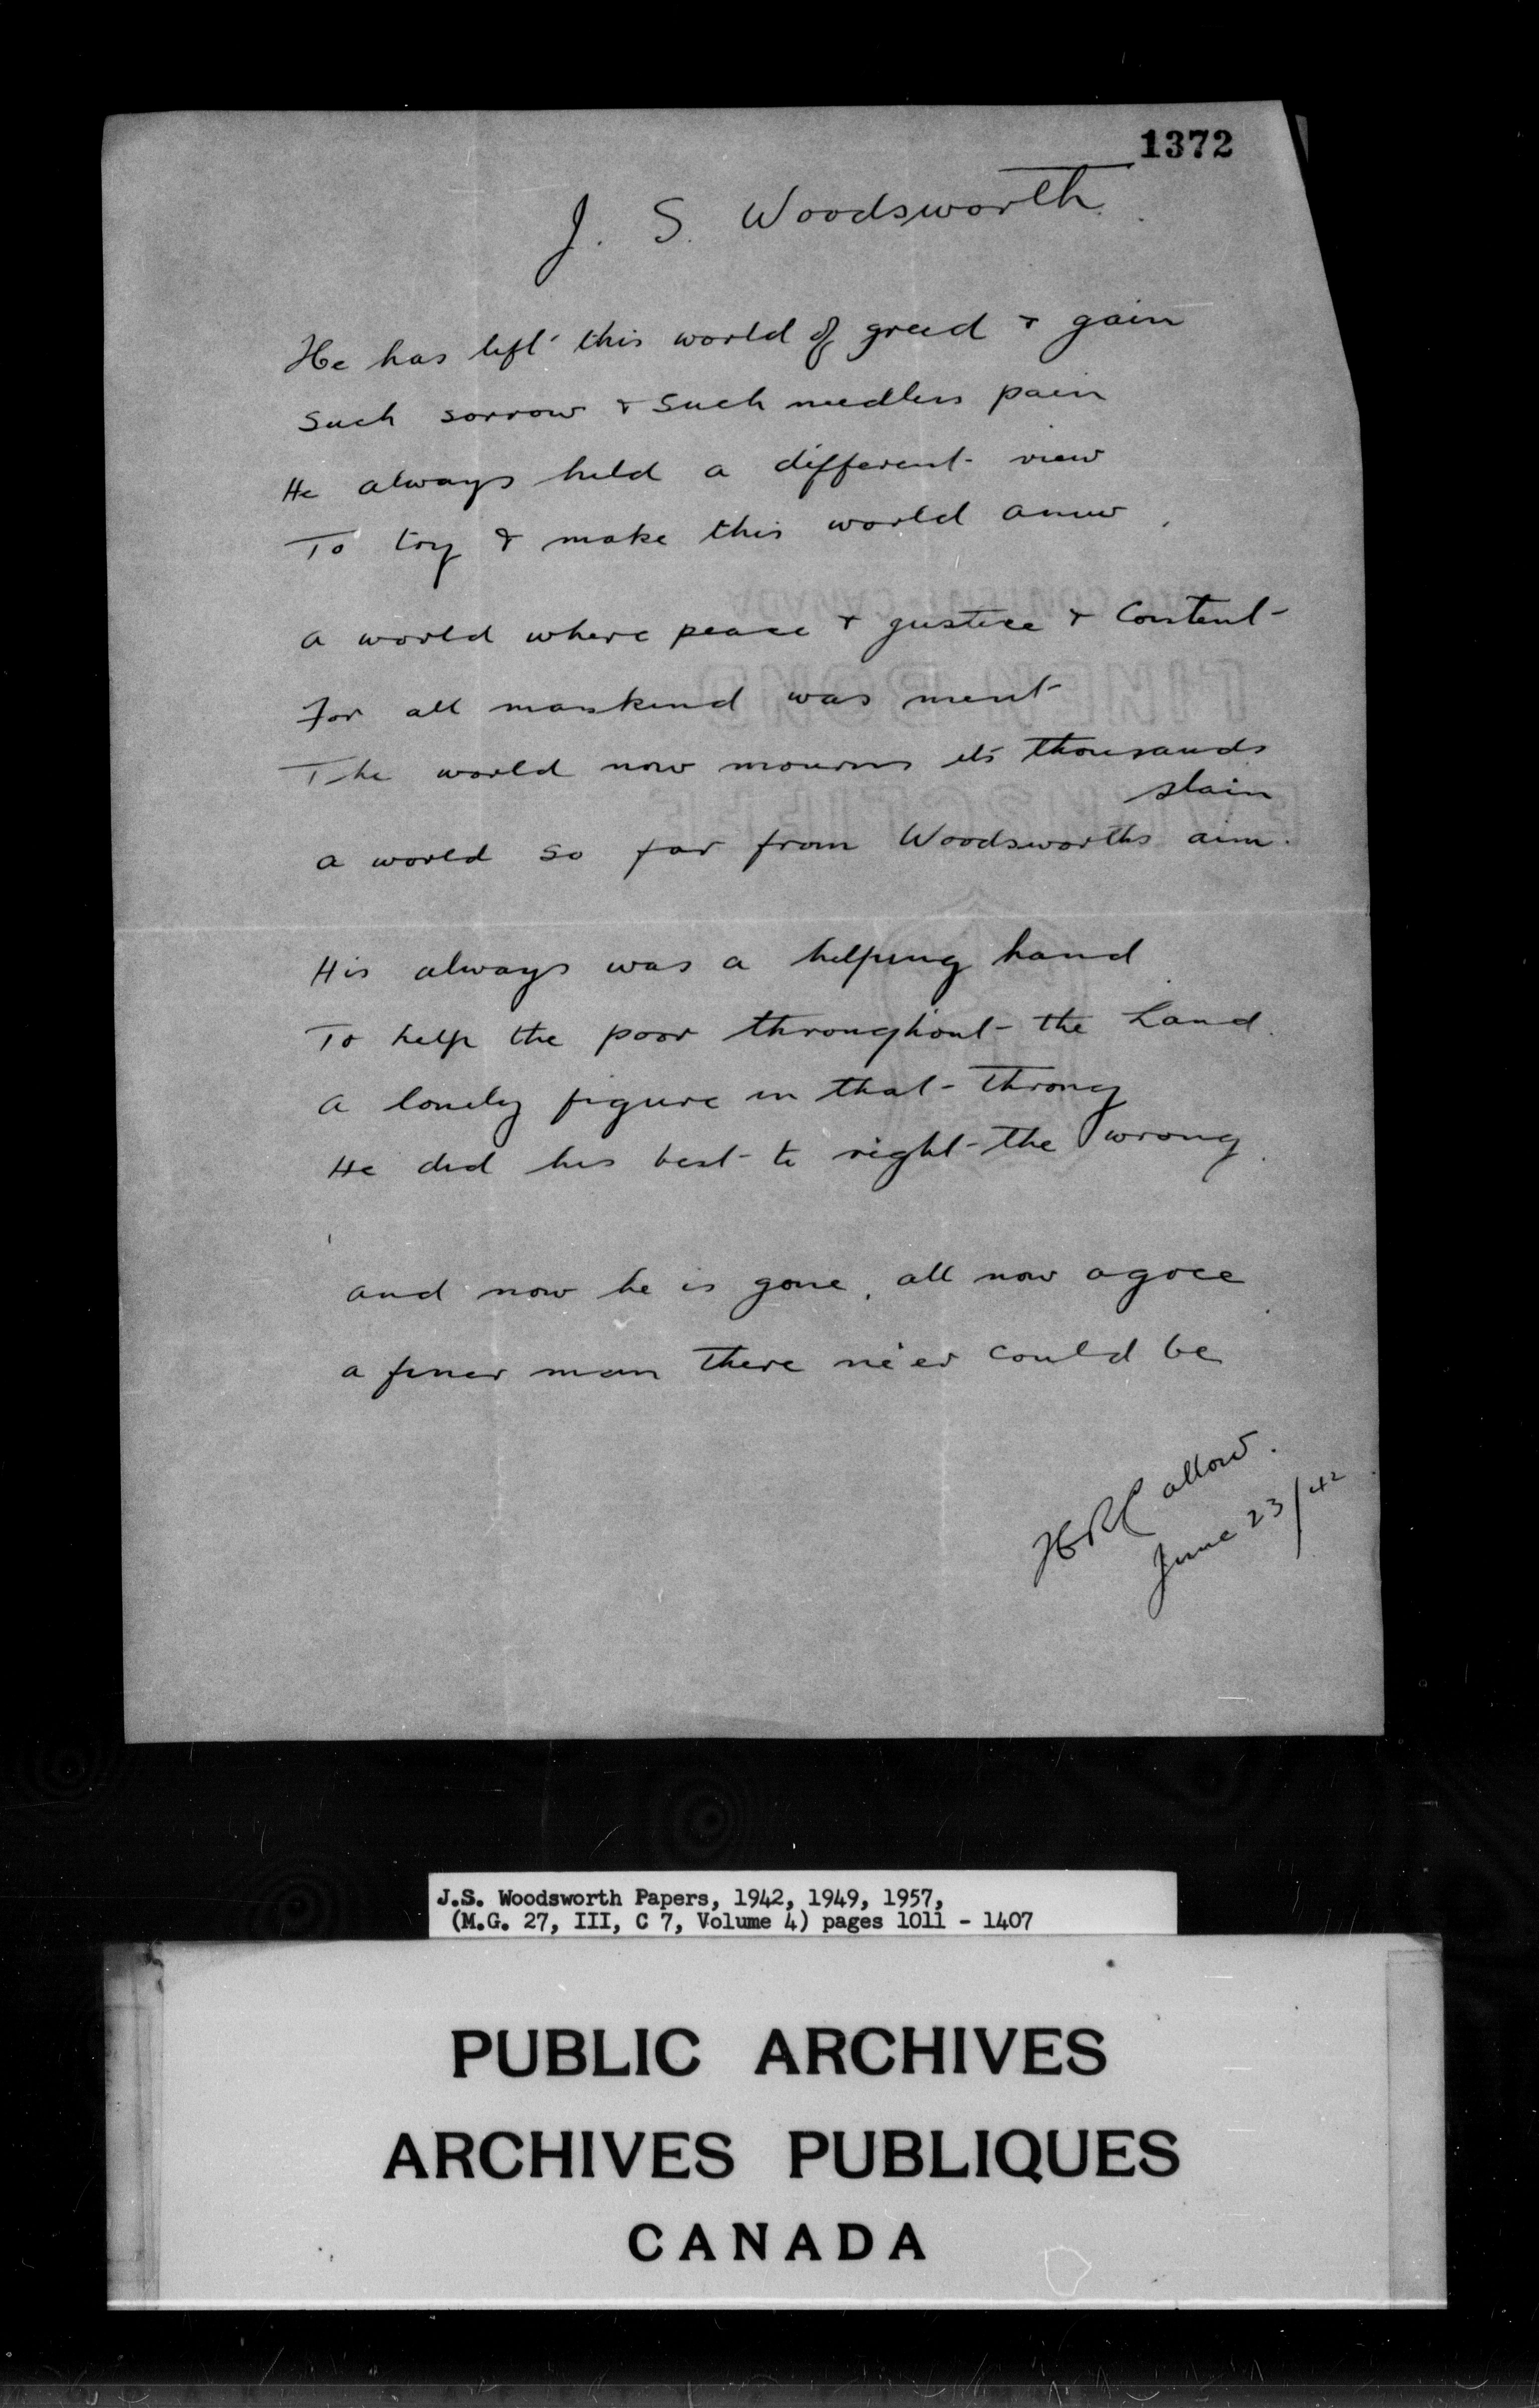 1372
J. S. Woodsworth.
He has left this world of greed & gain
Such sorrow & such needless pain
He always held a different view
To try & make this world anew,
a world where peace & justice & Content
For all mankind was ment
The world now mourns its thousands
slain
a world so far from Woodsworths aim.
His always was a helping hand
To help the poor throughout the Land.
a lonely figure in that Throng
He did his best to right the wrong.
and now he is gone, all now agree
a finer man There ne'er could be
HRCallow.
June 23/42
J.S. Woodsworth Papers, 1942, 1949, 1957,
(M.G. 27, III, C 7, Volume 4) pages 1011 - 1407
PUBLIC ARCHIVES
ARCHIVES PUBLIQUES
CANADA